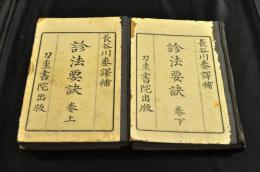 長谷川泰譯補
診法要訣 卷上
刀圭書院出版
長谷川泰譯補
診法要訣 卷下
刀圭書院出版